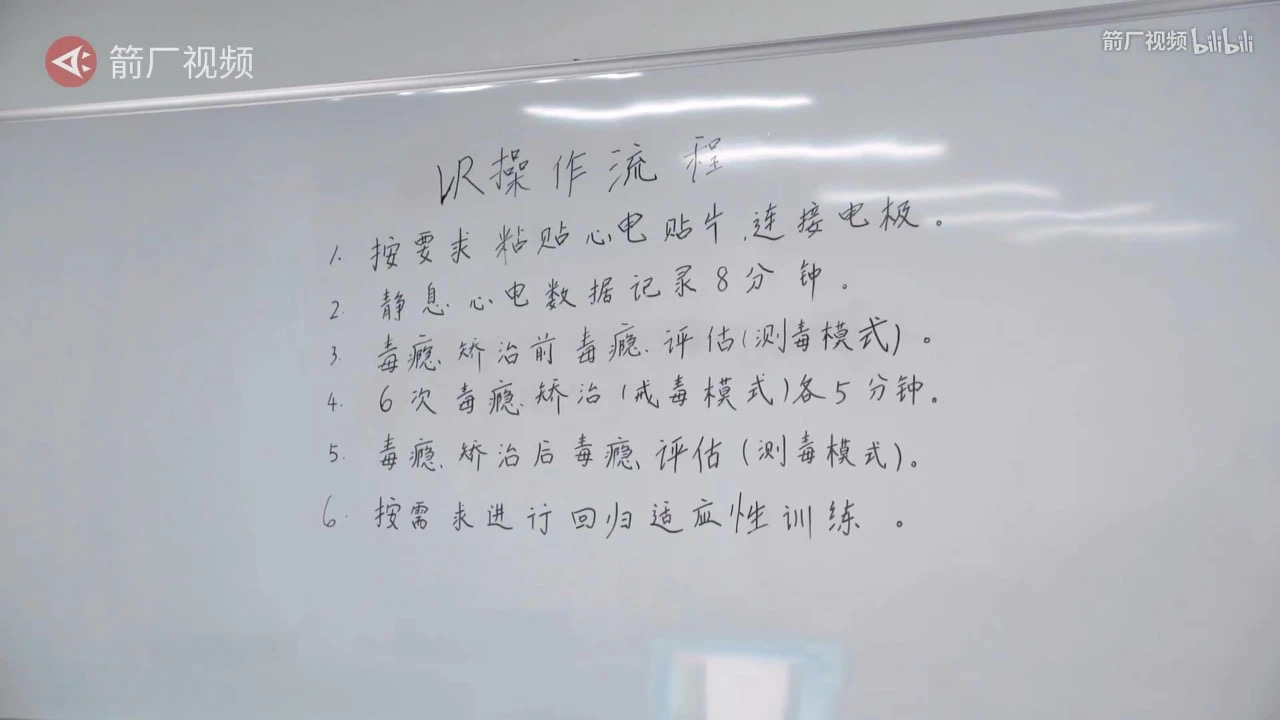 箭厂视频
箭厂视频 bilibili
VR操作流程
1. 按要求粘贴心电贴片,连接电极。
2. 静息心电数据记录8分钟。
3. 毒瘾矫治前毒瘾评估(测毒模式)。
4. 6次毒瘾矫治(戒毒模式)各5分钟。
5. 毒瘾矫治后毒瘾评估(测毒模式)。
6. 按需求进行回归适应性训练。